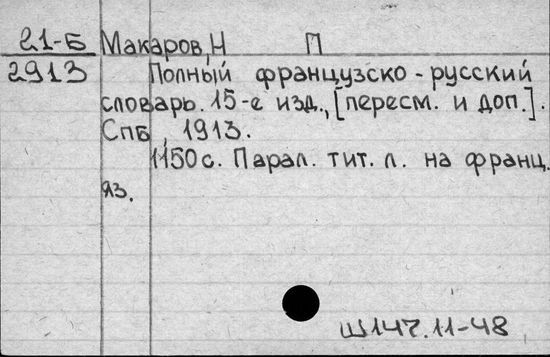 21-Б Макаров, Н П
2913 Полный французско-русский
словарь. 15-е изд., [пересм. и доп.].
Спб, 1913.
1150с. Парал. тит. л. на франц.
яз.
Ш147.11-48